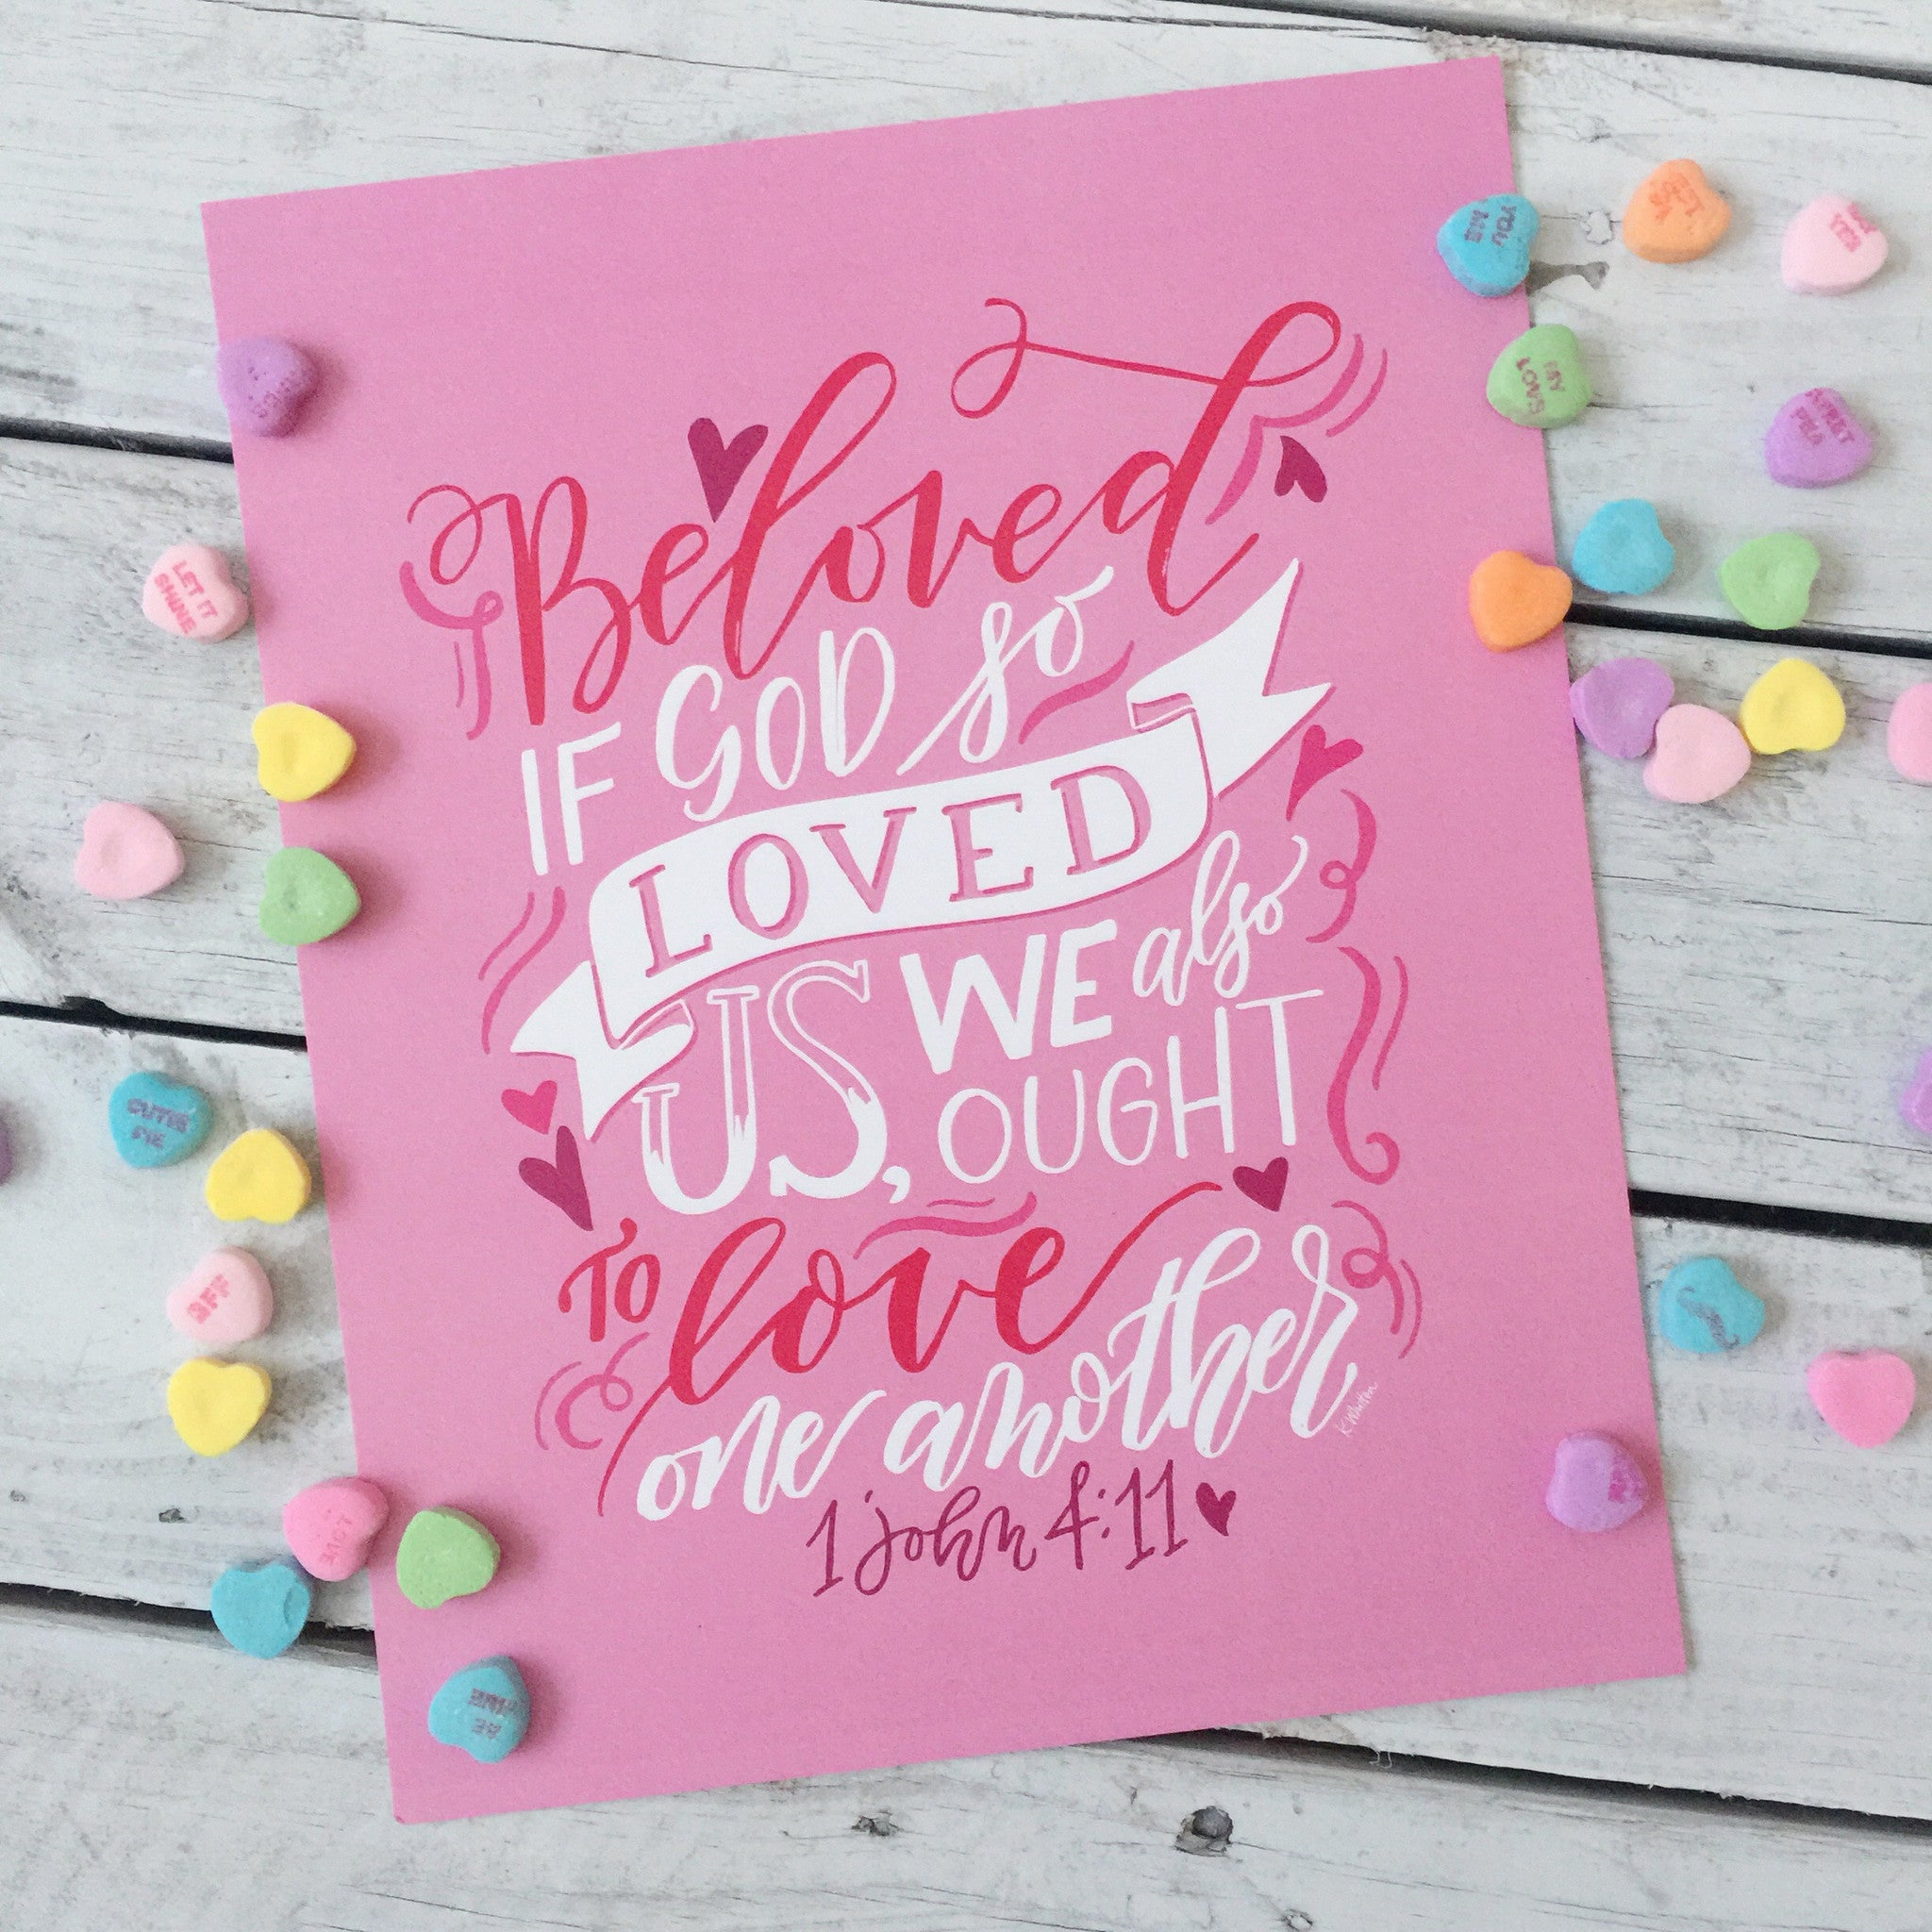 Beloved
IF GOD so
LOVED
US, WE also
OUGHT
TO love
one another
1 john 4:11
YOU
ME
MY
LOVE
LET IT
SHINE
CUTIE
PIE
BFF
LOVE
BE
MINE